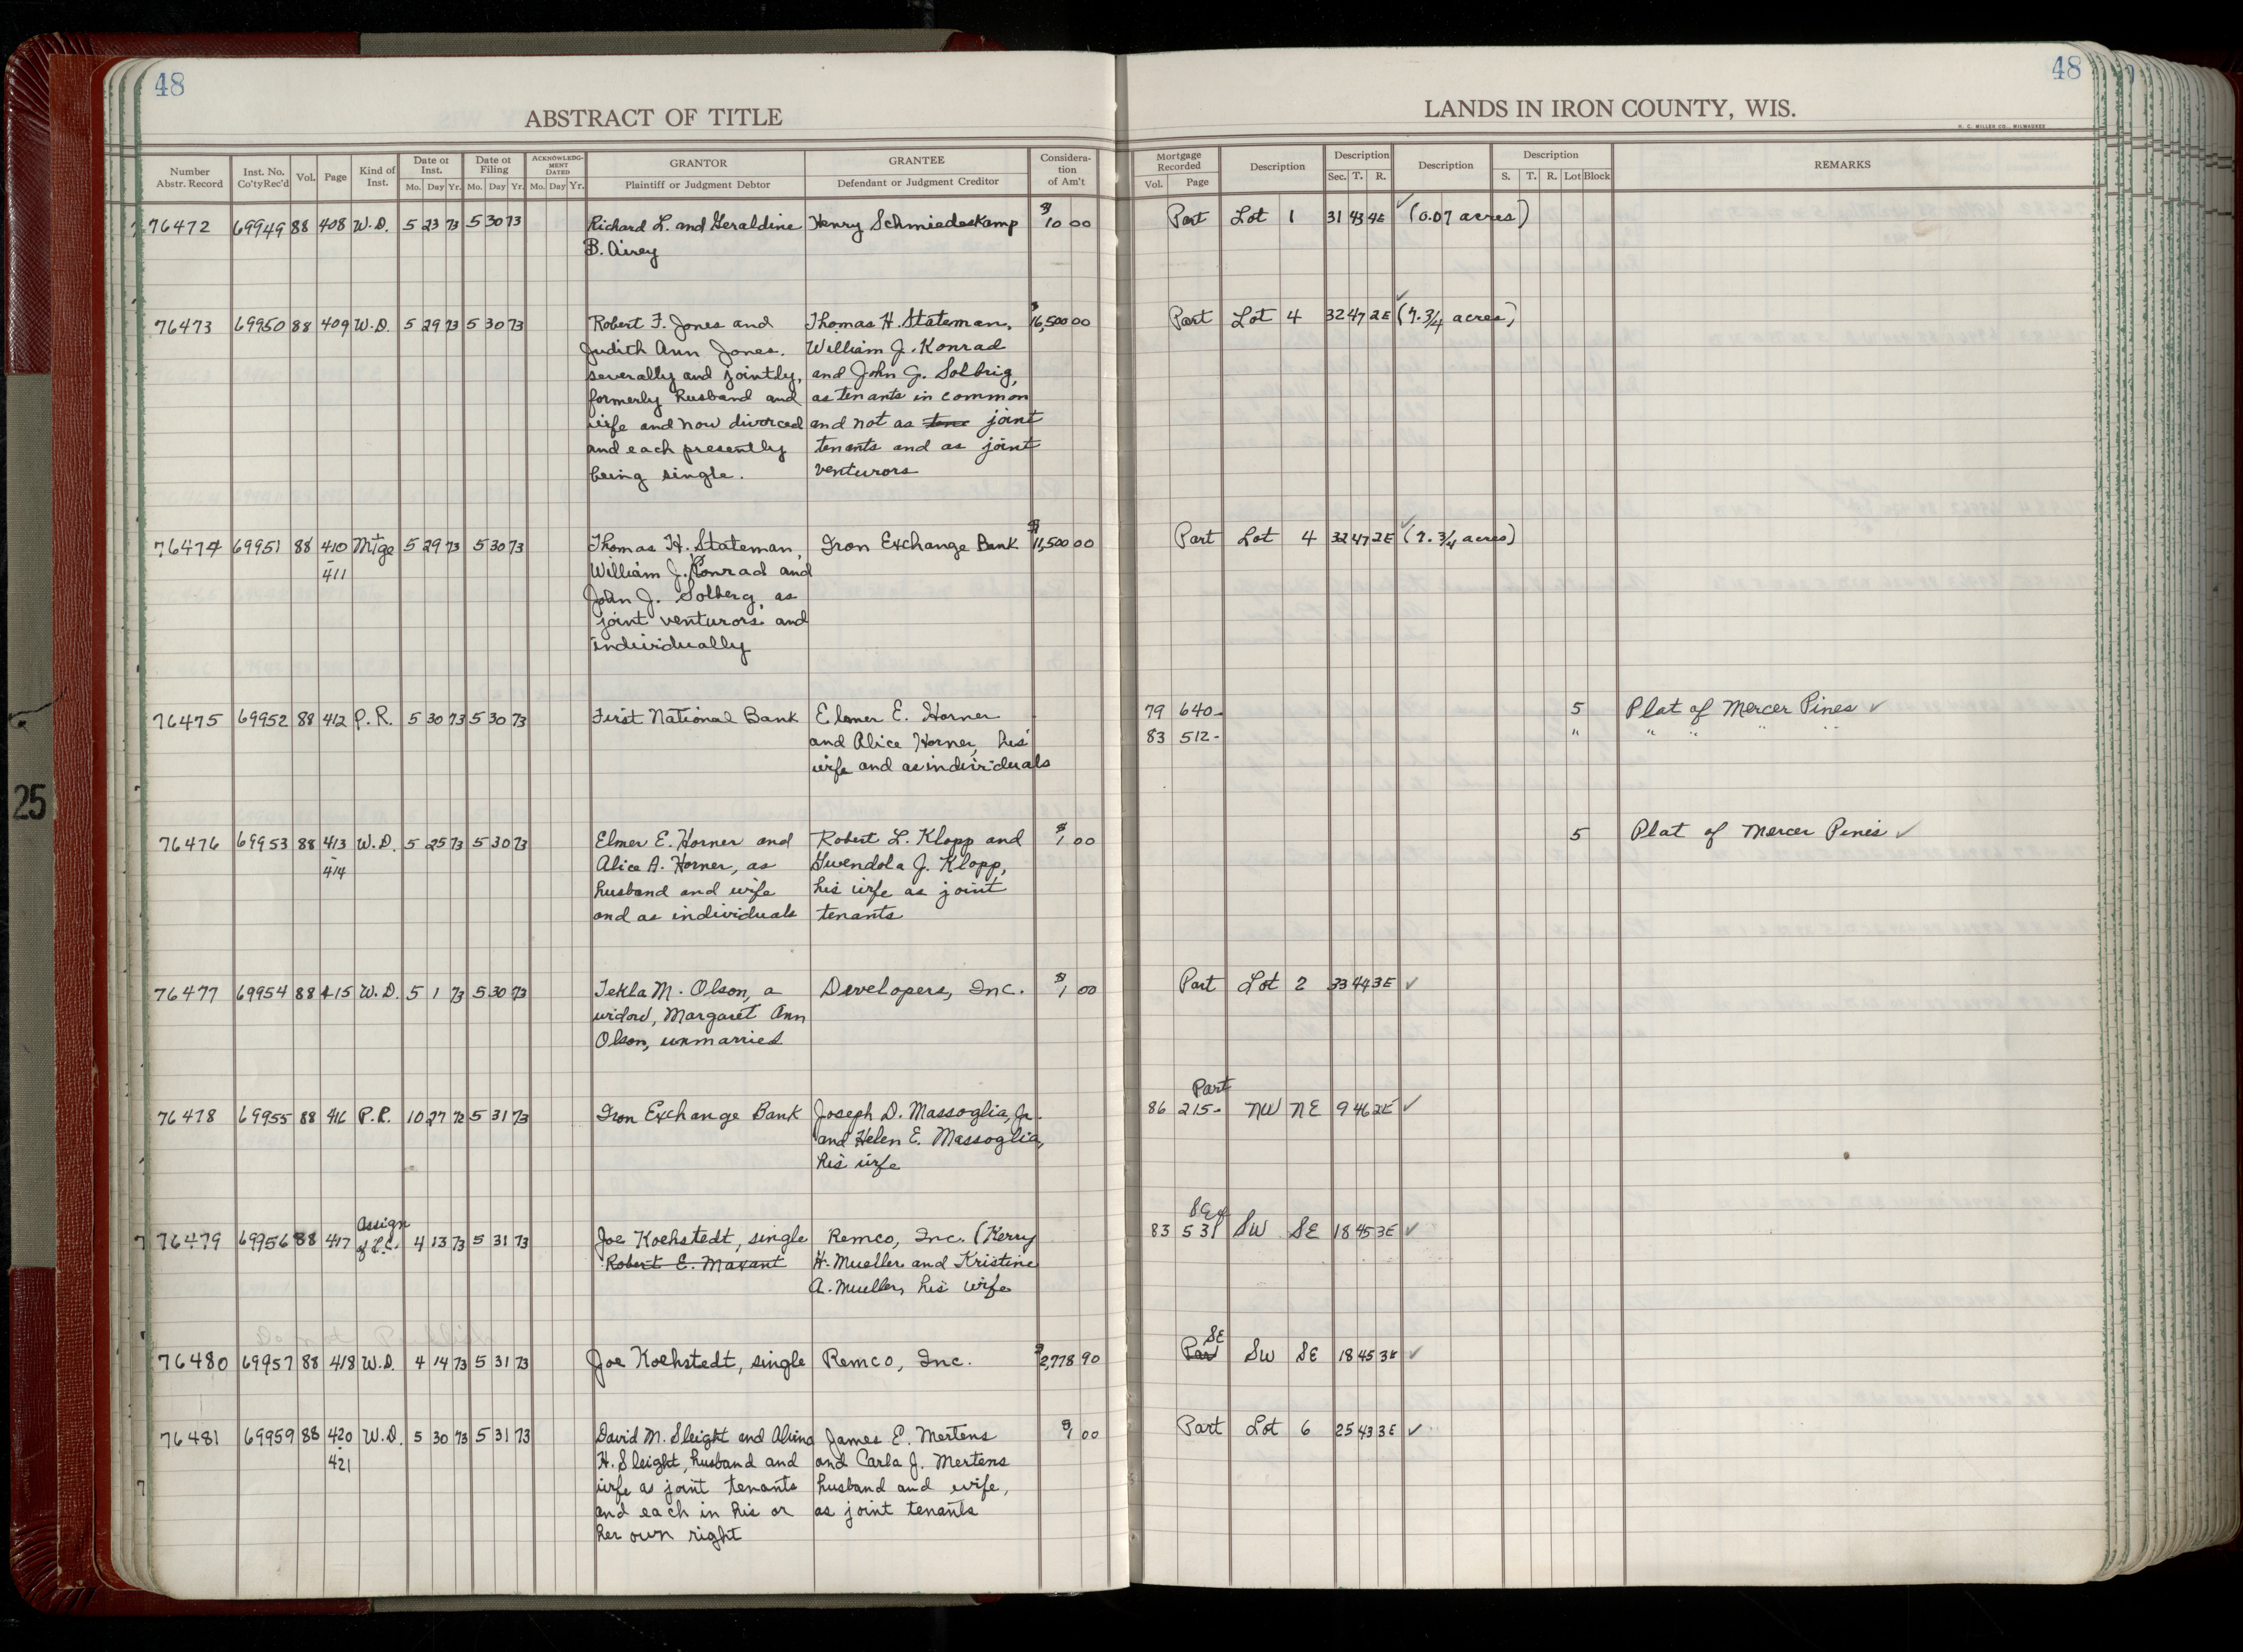 48
48
ABSTRACT OF TITLE
LANDS IN IRON COUNTY, WIS.
H. C. MILLER CO., MILWAUKEE
Number Abstr. Record Inst. No. Co'ty Rec'd Vol. Page Kind of Inst. Date of Inst. Mo. Day Yr. Date of Filing Mo. Day Yr. ACKNOWLEDGMENT DATED Mo. Day Yr. GRANTOR Plaintiff or Judgment Debtor GRANTEE Defendant or Judgment Creditor Consideration of Am't Mortgage Recorded Vol. Page Description Description Sec. T. R. Description Description S. T. R. Lot Block REMARKS
76472 69949 88 408 W.D. 5 23 73 5 30 73 Richard L. and Geraldine Henry Schmiedeskamp $10 00 Part Lot 1 31 43 4E ✓ (0.07 acres)
B. Airey
76473 69950 88 409 W.D. 5 29 73 5 30 73 Robert F. Jones and Thomas H. Stateman, $16,500 00 Part Lot 4 32 47 2E ✓ (7. 3/4 acres)
Judith Ann Jones. William J. Konrad
severally and jointly, and John G. Solbrig,
formerly husband and as tenants in common
wife and now divorced and not as tene joint
and each presently tenants and as joint
being single. venturors
76474 69951 88 410 Mtge 5 29 73 5 30 73 Thomas H. Stateman, Iron Exchange Bank $11,500 00 Part Lot 4 32 47 2E ✓ (7. 3/4 acres)
- 411 William J. Konrad and
John J. Solberg, as
joint venturors and
individually
76475 69952 88 412 P.R. 5 30 73 5 30 73 First National Bank Elmer E. Horner 79 640- 5 Plat of Mercer Pines ✓
and Alice Horner, his 83 512- " " " " "
wife and as individuals
76476 69953 88 413 W.D. 5 25 73 5 30 73 Elmer E. Horner and Robert L. Klopp and $1 00 5 Plat of Mercer Pines ✓
- 414 Alice A. Horner, as Gwendola J. Klopp,
husband and wife his wife as joint
and as individuals tenants
76477 69954 88 415 W.D. 5 1 73 5 30 73 Tekla M. Olson, a Developers, Inc. $1 00 Part Lot 2 33 44 3E ✓
widow, Margaret Ann
Olson, unmarried
Part
76478 69955 88 416 P.R. 10 27 72 5 31 73 Iron Exchange Bank Joseph D. Massoglia, Jr. 86 215- NW NE 9 46 2E ✓
and Helen E. Massoglia,
his wife
Assign SE of
76479 69956 88 417 of L.C. 4 13 73 5 31 73 Joe Koehstedt, single Remco, Inc. (Kerry 83 531 SW SE 18 45 3E ✓
Robert E. Mavant H. Mueller and Kristine
A. Mueller, his wife
SE
76480 69957 88 418 W.D. 4 14 73 5 31 73 Joe Koehstedt, single Remco, Inc. $2,778 90 Part SW SE 18 45 3E ✓
76481 69959 88 420 W.D. 5 30 73 5 31 73 David M. Sleight and Alvina James E. Mertens $1 00 Part Lot 6 25 43 3E ✓
- 421 H. Sleight, husband and and Carla J. Mertens
wife as joint tenants husband and wife,
and each in his or as joint tenants
her own right
25